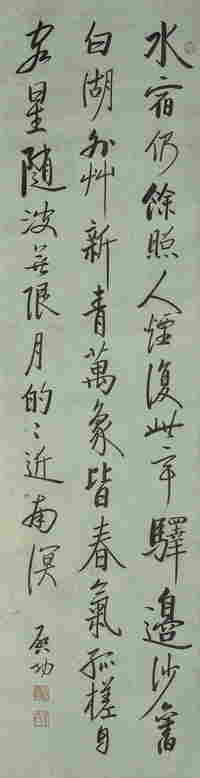 水宿仍餘照人煙復此亭驛邊沙舊
白湖外艸新青萬象皆春氣孤槎自
客星隨波無限月的〻近南溟
啟功